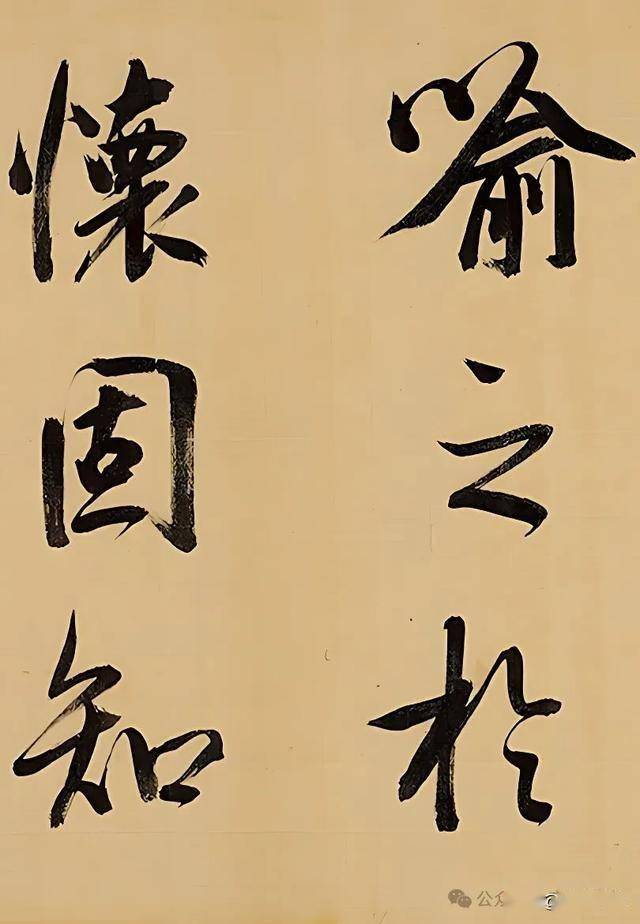 喻之於
懷固知
公众